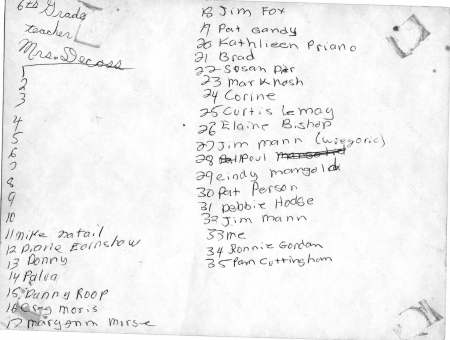 6th Grade
teacher
Mrs. Decoss
1
2
3
4
5
6
7
8
9
10
11 mike natail
12 Diane Earnshow
13 Donny
14 Palva
15, Danny Roop
16 Greg moris
17 maryann morse
18 Jim Fox
19 Pat Gandy
20 Kathlieen Priano
21 Brad
22 Susan
23 Mark Nash
24 Corine
25 Curtis Lemay
26 Elaine Bishop
27 Jim mann
28 Poul
29 cindy mangold
30 Pat Person
31 Debbie Hodge
32 Jim mann
33 me
34 Ronnie Gordan
35 Pam Cuttingham